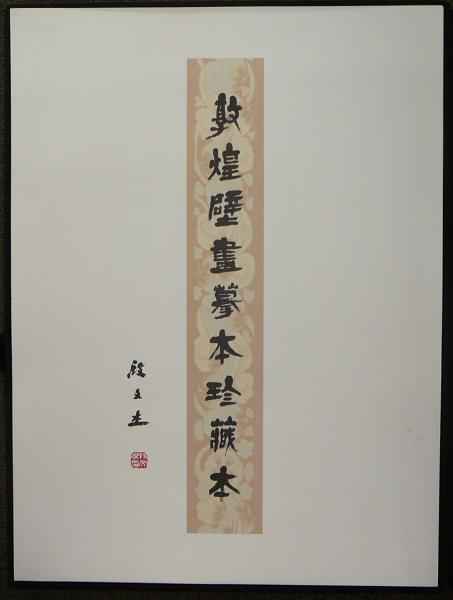 敦煌壁畫摹本珍藏本
段文杰